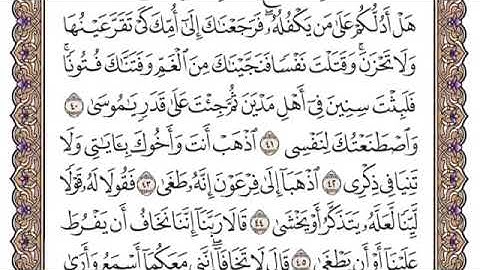 هَلْ أَدُلُّكُمْ عَلَىٰ مَن يَكْفُلُهُۥ ۖ فَرَجَعْنَٰكَ إِلَىٰٓ أُمِّكَ كَىْ تَقَرَّ عَيْنُهَا
وَلَا تَحْزَنَ ۚ وَقَتَلْتَ نَفْسًا فَنَجَّيْنَٰكَ مِنَ ٱلْغَمِّ وَفَتَنَّٰكَ فُتُونًا ۚ
فَلَبِثْتَ سِنِينَ فِىٓ أَهْلِ مَدْيَنَ ثُمَّ جِئْتَ عَلَىٰ قَدَرٍ يَٰمُوسَىٰ ٤٠
وَٱصْطَنَعْتُكَ لِنَفْسِى ٤١ ٱذْهَبْ أَنتَ وَأَخُوكَ بِـَٔايَٰتِى وَلَا
تَنِيَا فِى ذِكْرِى ٤٢ ٱذْهَبَآ إِلَىٰ فِرْعَوْنَ إِنَّهُۥ طَغَىٰ ٤٣ فَقُولَا لَهُۥ قَوْلًا
لَّيِّنًا لَّعَلَّهُۥ يَتَذَكَّرُ أَوْ يَخْشَىٰ ٤٤ قَالَا رَبَّنَآ إِنَّنَا نَخَافُ أَن يَفْرُطَ
عَلَيْنَآ أَوْ أَن يَطْغَىٰ ٤٥ قَالَ لَا تَخَافَآ ۖ إِنَّنِى مَعَكُمَآ أَسْمَعُ وَأَرَىٰ